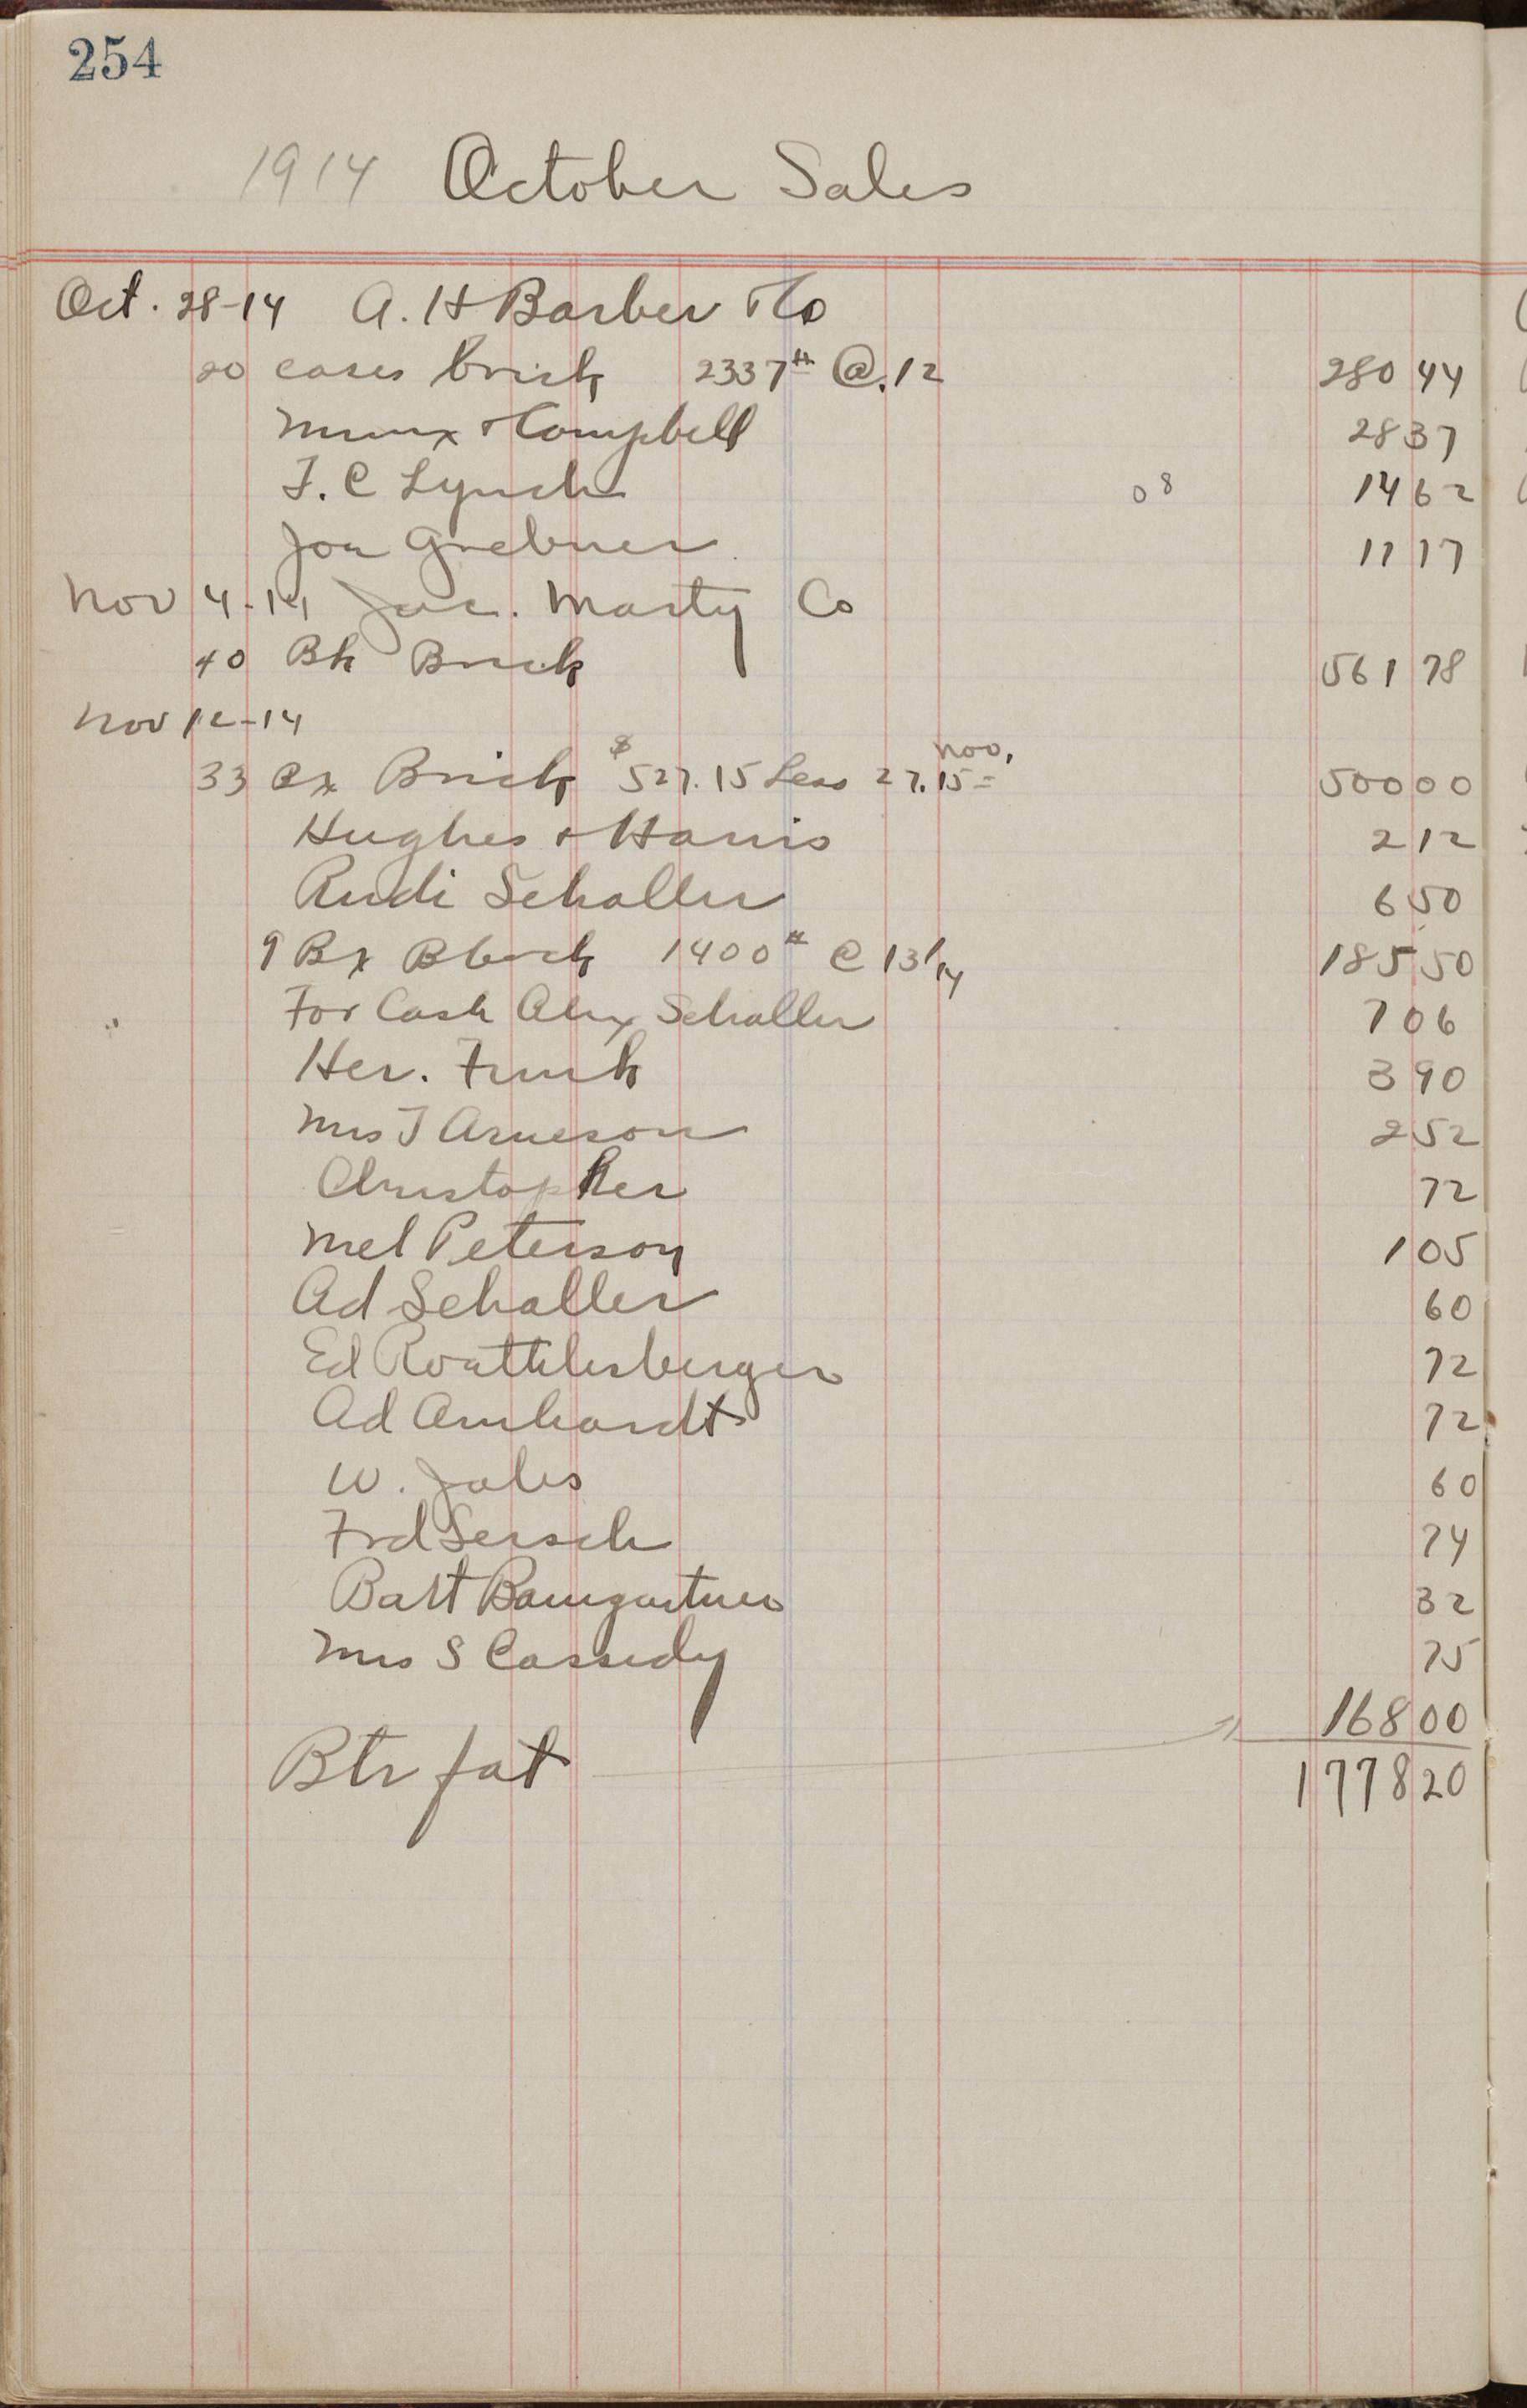 254
1914 October Sales
Oct. 28-14 A. H Barber & Co
20 cases brick 2337# @.12 280 44
Munx & Campbell 28 37
F. C Lynch 08 14 62
Joa Grebner 11 17
Nov 4-14 Jac. Marty Co
40 Bx Brick 561 78
Nov 12-14
Nov.
33 Bx Brick $527.15 Less 27.15= 500 00
Hughes & Harris 2 12
Rudi Schaller 6 50
9 Bx Block 1400# @ 13 1/4 185 50
For Cash Alex Schaller 7 06
Her. Funk 3 90
Mrs T Arneson 2 52
Christopher 72
Mel Peterson 1 05
Ad Schaller 60
Ed Roathlesberger 72
Ad Arnhardt 72
W. Jales 60
Frd Sersch 74
Balt Baumgartner 32
Mrs S Cassidy 75
168 00
Btr fat 1778 20